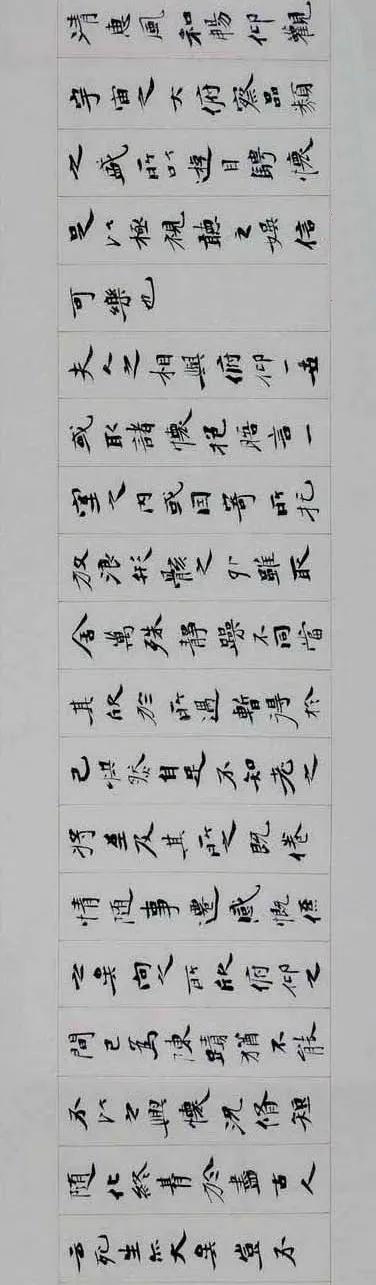 清惠風和暢仰觀
宇宙之大俯察品類
之盛所以遊目騁懷
足以極視聽之娛信
可樂也
夫人之相與俯仰一世
或取諸懷抱晤言一
室之內或因寄所托
放浪形骸之外雖取
舍萬殊靜躁不同當
其欣於所遇暫得於
己怏然自足不知老之
將至及其所之既倦
情随事遷感慨係
之矣向之所欣俯仰之
間已為陳蹟猶不能
不以之興懷況脩短
随化終朞於盡古人
云死生亦大矣豈不